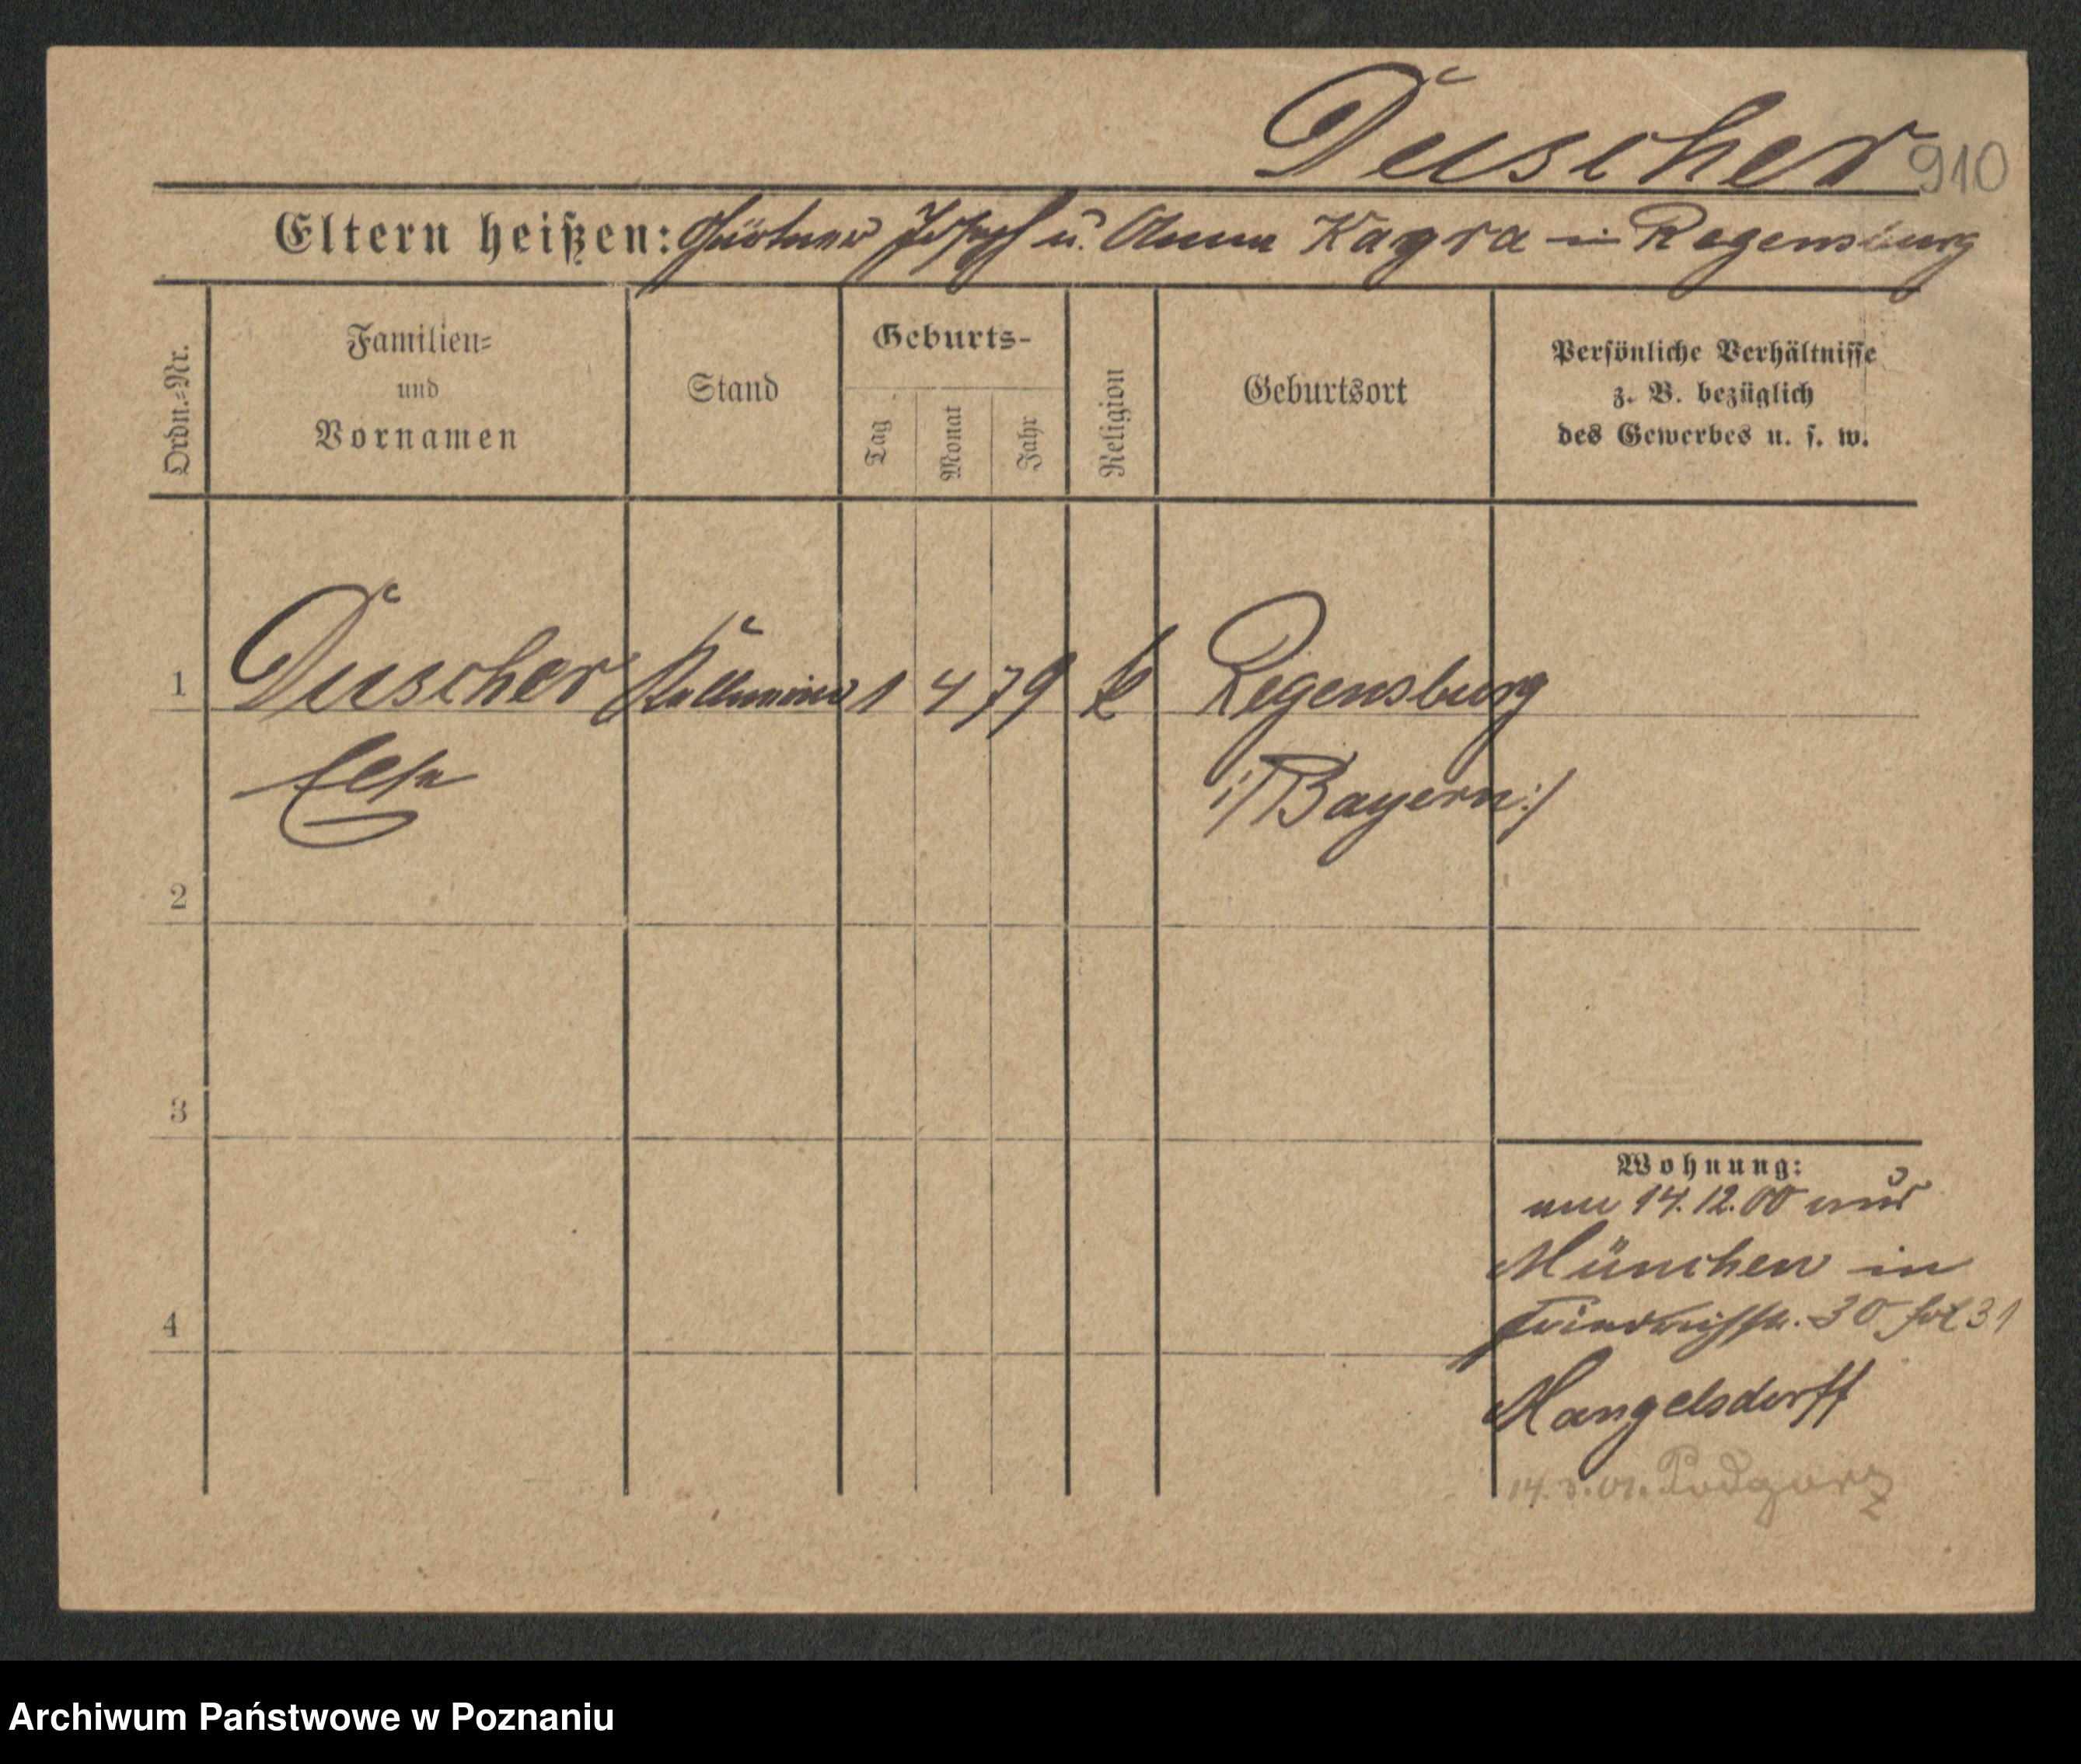 Duscher
910
Eltern heißen: Gärtner Josef u. Anna Kagra in Regensburg
Ordn.-Nr.
Familien-
und
Vornamen
Stand
Geburts-
Tag
Monat
Jahr
Religion
Geburtsort
Persönliche Verhältnisse
z. B. bezüglich
des Gewerbes u. s. w.
1 Duscher Kellnerin 1 4 79 k Regensburg
Else
/:Bayern:/
2
3
4
Wohnung:
am 14.12.00 aus
München in
30 31
Mangelsdorff
Podgorz
Archiwum Państwowe w Poznaniu